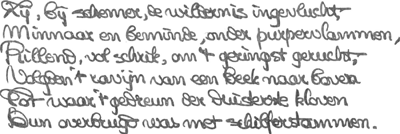 Zij, bij schemer, de wildernis ingevlucht,
Minnaar en beminde, onder purpervlammen,
Rillend, vol schrik, om 't geringst gerucht,
Volgden 't ravijn van een beek naar boven
Tot waar 't gedreun der duisterste kloven
Dun overbrugd was met schilferstammen.